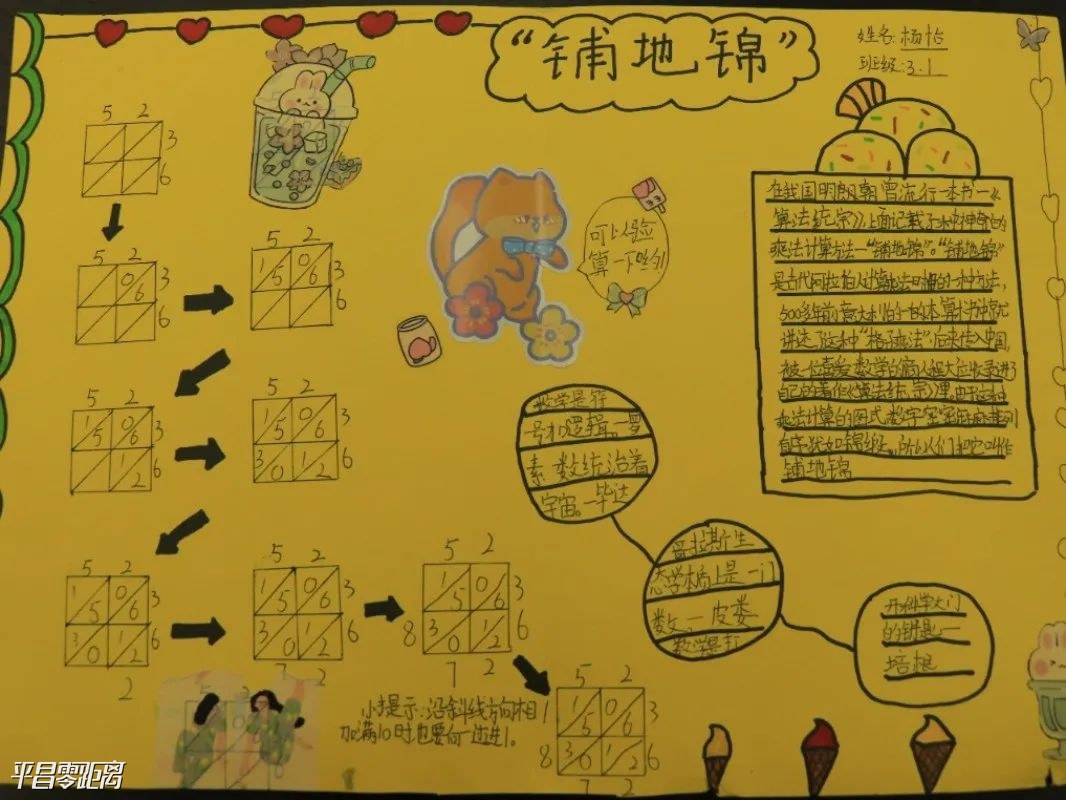 “铺地锦”
姓名:杨怡
班级:3.1
5 2
3
6
5 2
0 3
6
6
5 2
1 0 3
5 6
6
5 2
1 0 3
5 6
1 6
2
5 2
1 0 3
5 6
3 1 6
0 2
5 2
1 0 3
5 6
3 1 6
0 2
2
5 2
1 0 3
5 6
3 1 6
0 2
7 2
5 2
1 0 3
5 6
8 3 1 6
0 2
7 2
5 2
1 1 0 3
5 6
8 3 1 6
0 2
7 2
小提示:沿斜线方向相
加满10时,也要向前一进1。
可以验
算一下哟!
在我国明朝曾流行一本书一《
算法统宗》,上面记载了一种神奇的
乘法计算方法一“铺地锦”。“铺地锦”
是古代阿拉伯人计算乘法时的一种方法,
500多年前意大利的一本算术书中就
讲述了这种“格子乘法”,后来传入中国,
被一位喜爱数学的商人程大位收录进了
自己的著作《算法统宗》里,由于这种
乘法计算的图式
犹如锦缎,所以人们把它叫作
铺地锦
数学是符
号和逻辑。一罗
素 数统治着
宇宙。一毕达
哥拉斯
学本质上是一门
数 一皮娄
数学是打
开科学大门
的钥匙一
培根
平昌零距离